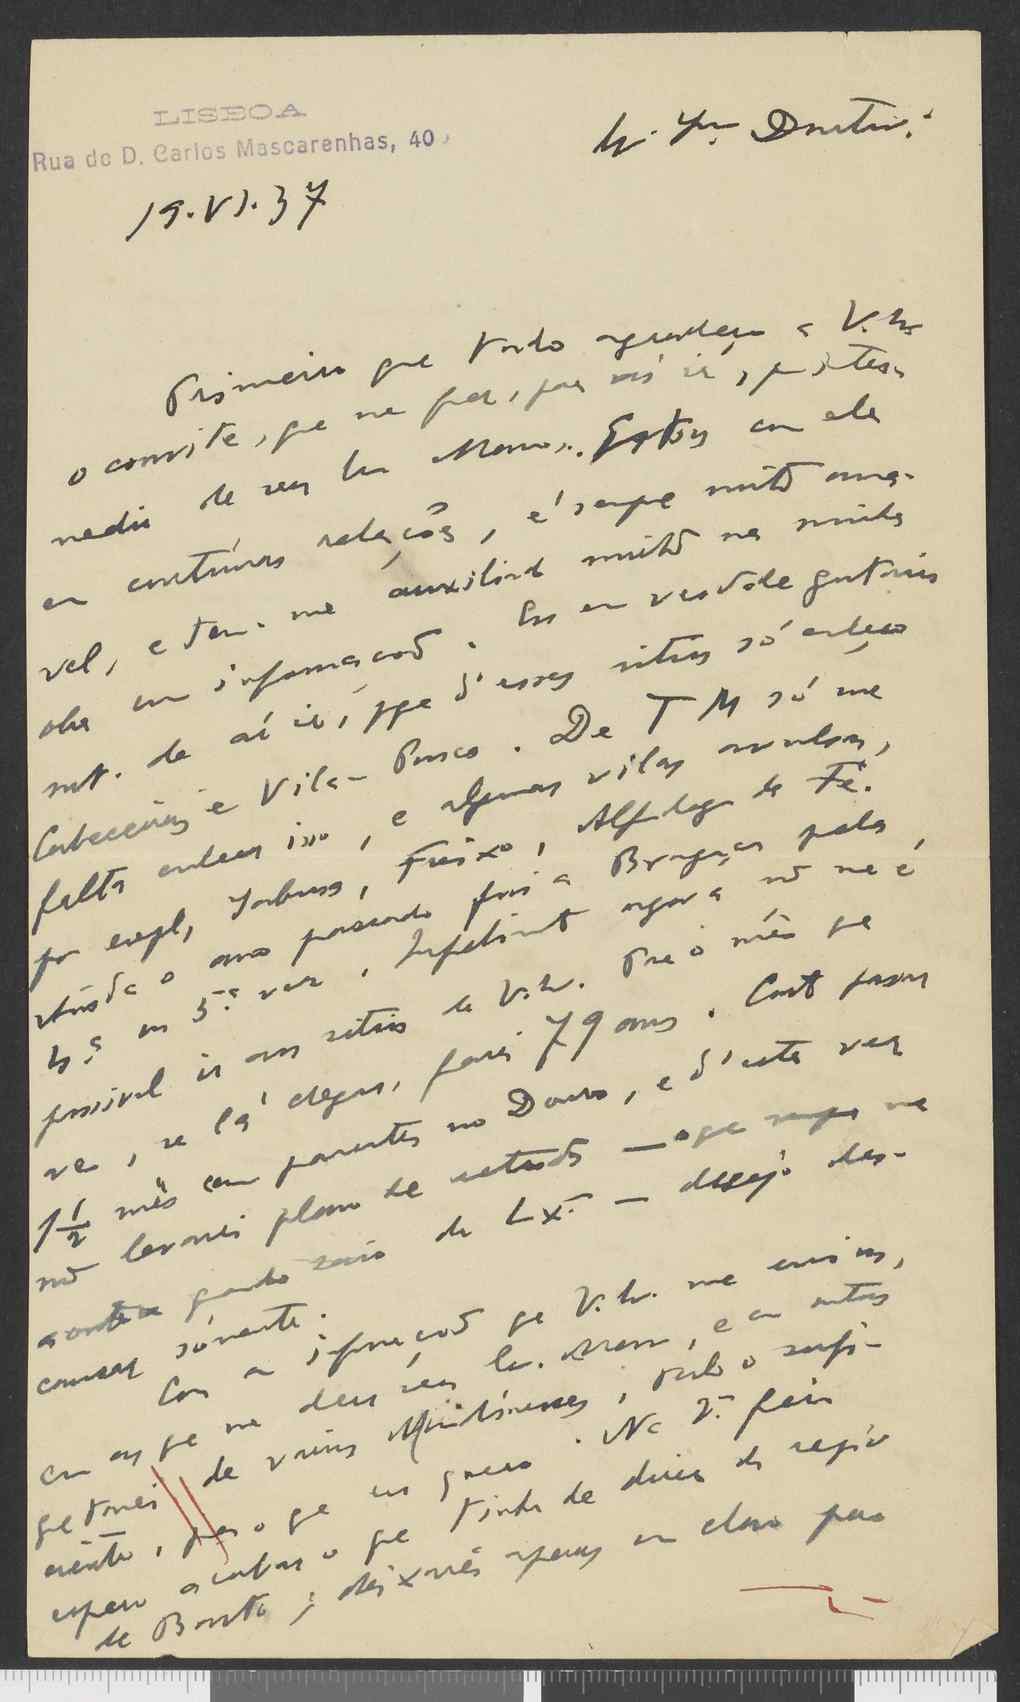 LISBOA
Rua de D. Carlos Mascarenhas, 40
19.VI.37
Primeiro que tudo agradeço a V.
o convite, que me fez, para aí ir, 
de seu Mano. Estou com ele
em contínuas relações, é sempre muito ama-
vel, e tem-me auxiliado muito na minha
obra com informações. Eu em verdade gostaria
mt. de aí ir, pqe d'esses sitios só conheço
Cabeceiras e Vila-Pouca. De T M só me
falta conhecer isso, e algumas vilas avulsas,
por exempl, Freixo, Alfandega da Fé.
Ainda o ano passado fui a Bragança pela
4.ª ou 5.ª vez. Infelizmt agora não me é
possivel ir aos sitios de V. Pae o mês que
vem, se lá chegar, farei 79 anos. Cost passar
1 1/2 mês com parentes no Douro, e d'esta vez
não levarei plano de estudos — o que sempre me
acontece quando saio de Lx.ª — desejo des-
cansar sómente.
Com as informações que V. me enviou,
com as que me deu seu Mano, e com outras
que tomei de varios Mirandeses, tenho o sufi-
ciente, para o que eu quero. Na 2.ª feira
espero acabar o que tinha de dizer da região
de Barroso; deixarei apenas em claro para